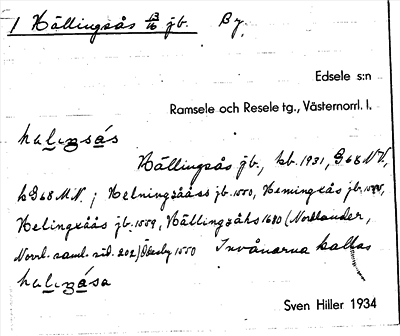 1 Hällingsås 13/16 jb. By.
Edsele s:n
Ramsele och Resele tg., Västernorrl. l.
halıŋsås
Hällingsås jb., kb. 1931, G68NV,
kG68M.V.; Helningsååss jb. 1550, Hemingsås jb.
Helingxåås jb. 1559, Hällingzåhs 1680 (Nordlander,
Norrl. saml. sid. 202) 1550 Invånarna kallas
halıŋåsa
Sven Hiller 1934